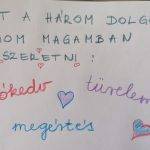 T A HÁROM DOLGO
OM MAGAMBAN
SZERETNI:
ókedv türelem
megértés